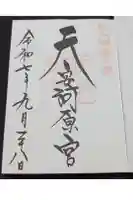 天安河原宮
令和七年九月二八日